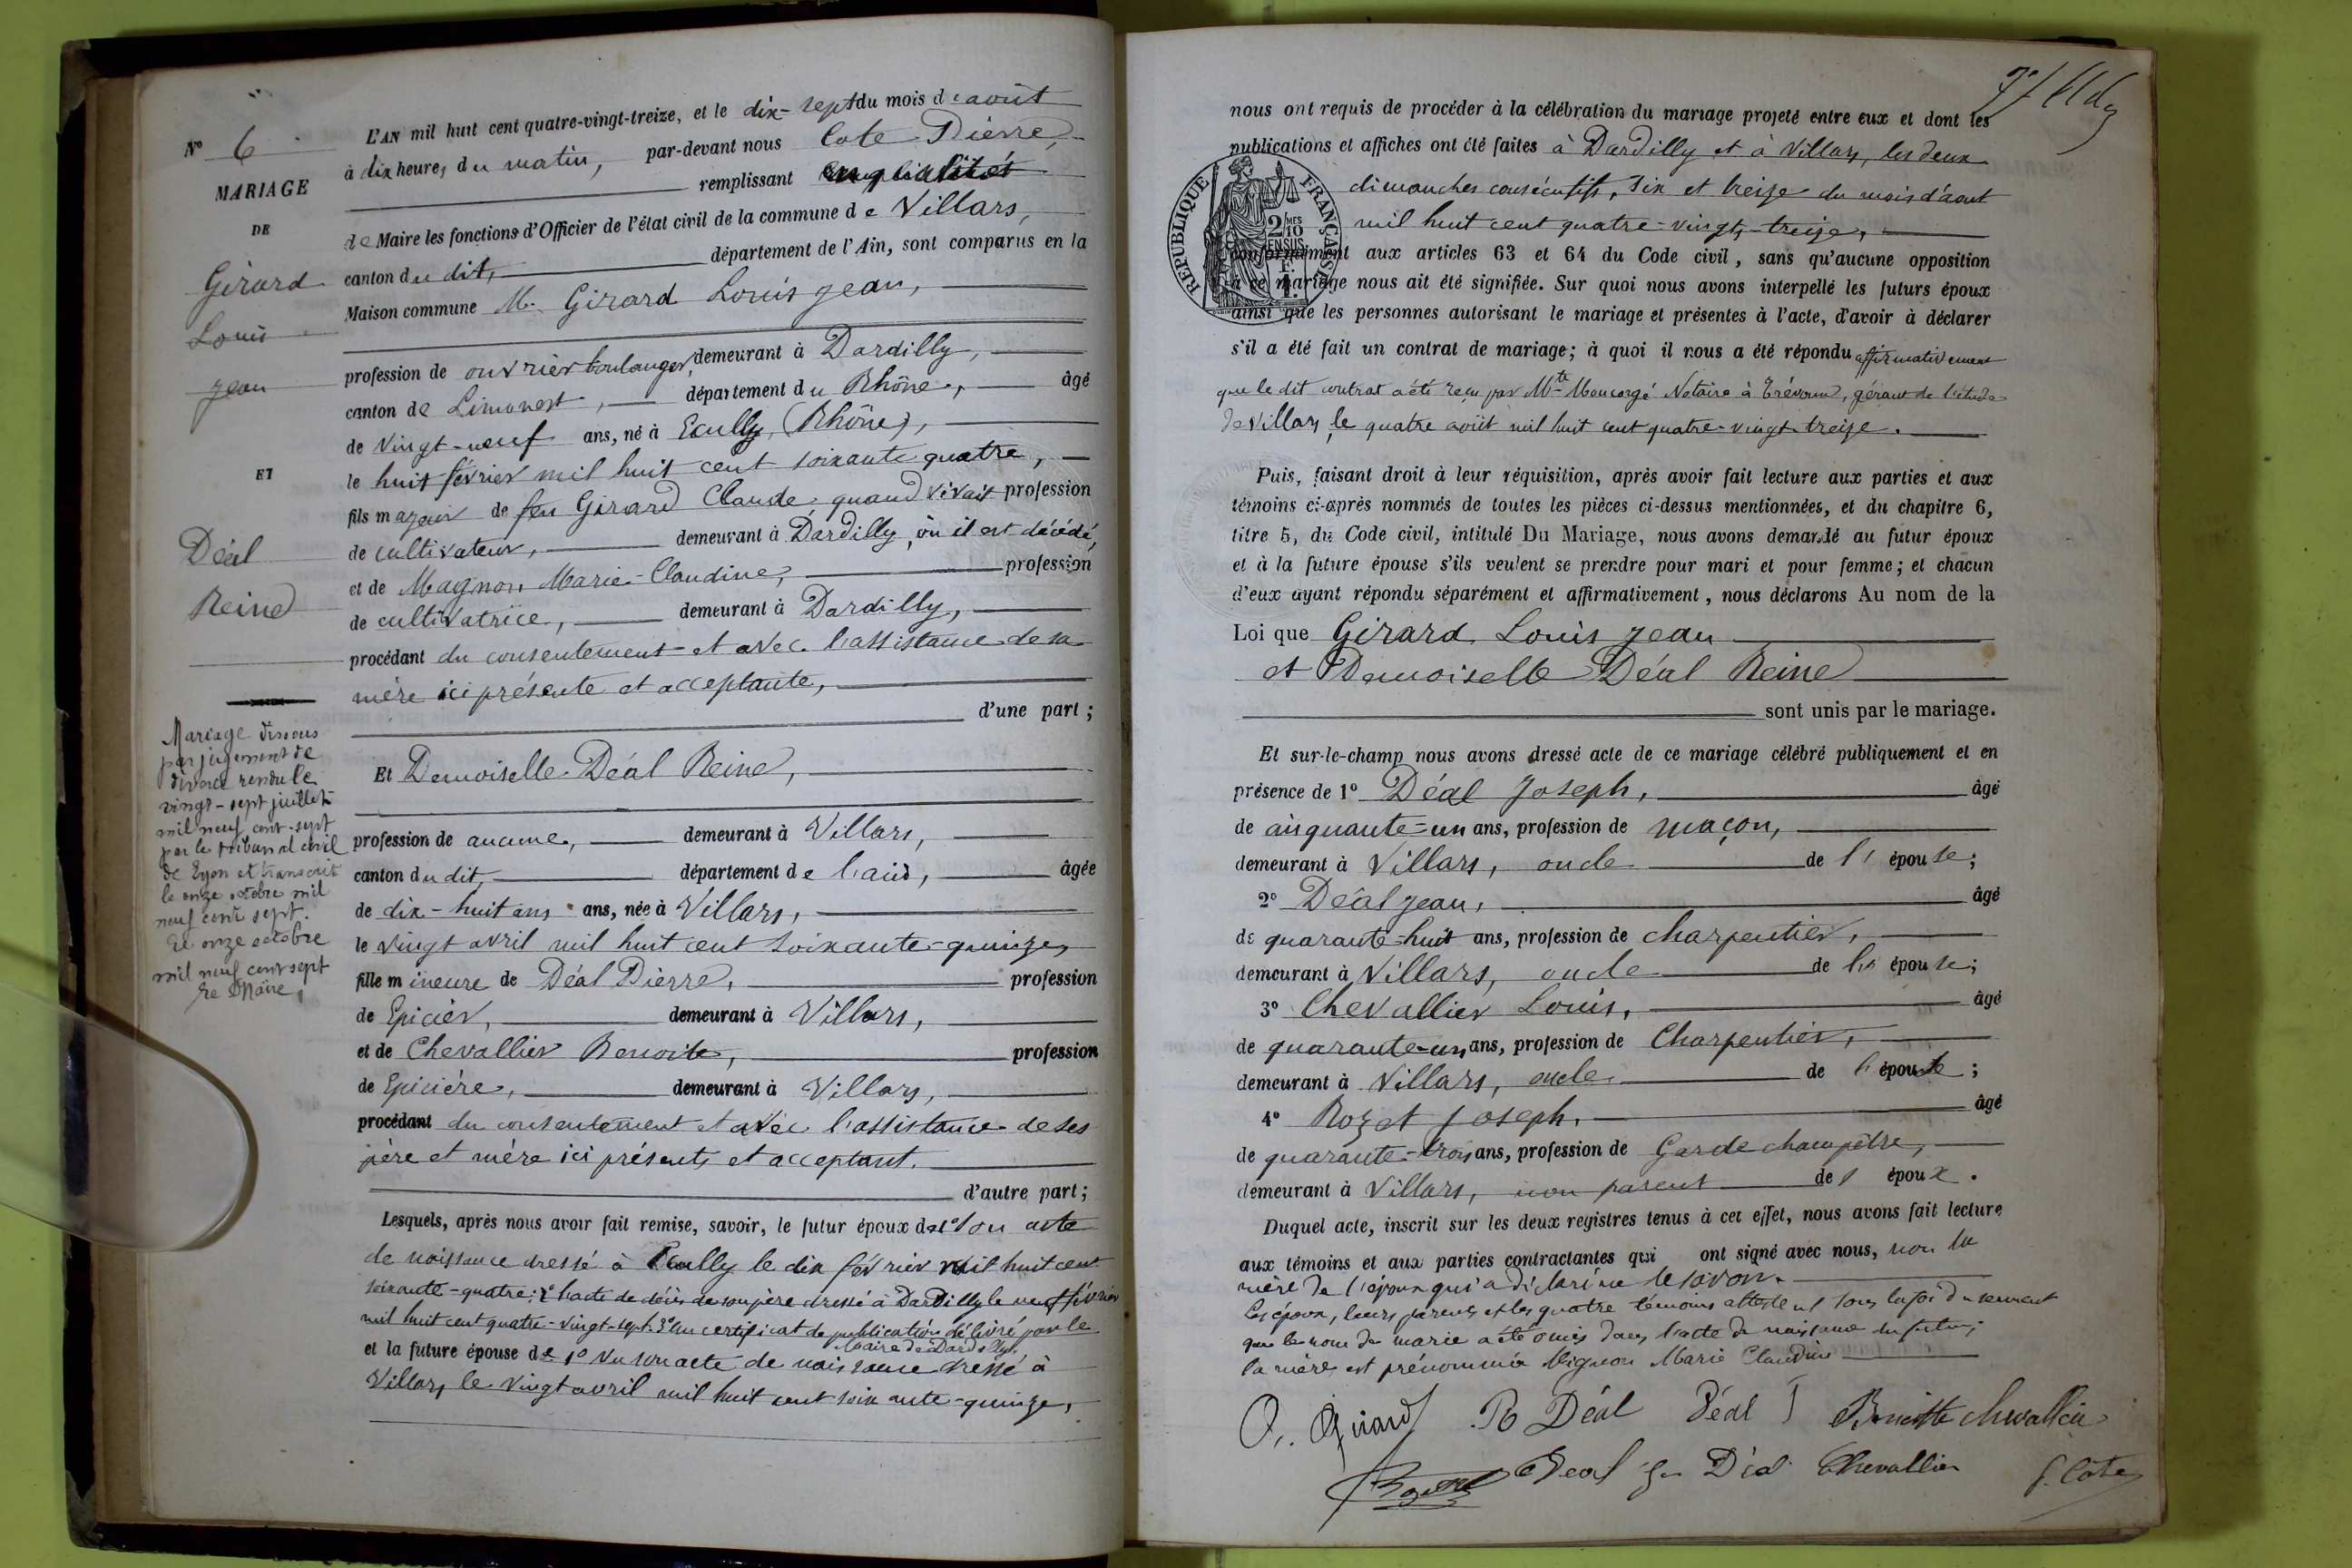 N° 6
MARIAGE
DE
Girard
Louis
Jean
ET
Déal
Reine
Mariage dissous
par jugement de
divorce rendu le
vingt-sept juillet
mil neuf cent-sept
par le tribunal civil
de Lyon et transcrit
le onze octobre mil
neuf cent sept.
Le onze octobre
mil neuf cent sept
Le Maire,
L'AN mil huit cent quatre-vingt-treize, et le dix-sept du mois d'août
à dix heures du matin, par-devant nous Cote Pierre,
remplissant en qualité
de Maire les fonctions d'Officier de l'état civil de la commune de Villars,
canton du dit, département de l'Ain, sont comparus en la
Maison commune M. Girard Louis Jean,
profession de ouvrier boulanger, demeurant à Dardilly,
canton de Limonest, département du Rhône, âgé
de vingt-neuf ans, né à Ecully (Rhône),
le huit février mil huit cent soixante quatre,
fils majeur de feu Girard Claude, quand vivait profession
de cultivateur, demeurant à Dardilly, où il est décédé,
et de Magnon Marie-Claudine, profession
de cultivatrice, demeurant à Dardilly,
procédant du consentement et avec l'assistance de sa
mère ici présente et acceptante,
d'une part;
Et Demoiselle Déal Reine,
profession de aucune, demeurant à Villars,
canton du dit, département de l'ain, âgée
de dix-huit ans ans, née à Villars,
le vingt avril mil huit cent soixante-quinze,
fille mineure de Déal Pierre, profession
de Epicier, demeurant à Villars,
et de Chevallier Benoite, profession
de Epicière, demeurant à Villars,
procédant du consentement et avec l'assistance de ses
père et mère ici présents et acceptant.
d'autre part;
Lesquels, après nous avoir fait remise, savoir, le futur époux de 1° son acte
de naissance dressé à Ecully le dix février mil huit cent
soixante-quatre; 2° l'acte de décès de son père dressé à Dardilly le neuf février
mil huit cent quatre-vingt-sept. 3° Un certificat de publication délivré par le
Maire de Dardilly.
et la future épouse de 1° Vu son acte de naissance dressé à
Villars le vingt avril mil huit cent soixante-quinze,
nous ont requis de procéder à la célébration du mariage projeté entre eux et dont les
publications et affiches ont été faites à Dardilly et à Villars, les deux
dimanches consécutifs, six et treize du mois d'aout
mil huit cent quatre-vingt-treize,
REPUBLIQUE FRANÇAISE
2/10 MES
EN SUS
conformément aux articles 63 et 64 du Code civil, sans qu'aucune opposition
à ce mariage nous ait été signifiée. Sur quoi nous avons interpellé les futurs époux
ainsi que les personnes autorisant le mariage et présentes à l'acte, d'avoir à déclarer
s'il a été fait un contrat de mariage; à quoi il nous a été répondu affirmativement
que le dit contrat a été reçu par Mte Moncorgé Notaire à Trévoux, gérant de l'étude
de Villars, le quatre août mil huit cent quatre-vingt-treize.
Puis, faisant droit à leur réquisition, après avoir fait lecture aux parties et aux
témoins ci-après nommés de toutes les pièces ci-dessus mentionnées, et du chapitre 6,
titre 5, du Code civil, intitulé Du Mariage, nous avons demandé au futur époux
et à la future épouse s'ils veulent se prendre pour mari et pour femme; et chacun
d'eux ayant répondu séparément et affirmativement, nous déclarons Au nom de la
Loi que Girard Louis Jean
et Demoiselle Déal Reine
sont unis par le mariage.
Et sur-le-champ nous avons dressé acte de ce mariage célébré publiquement et en
présence de 1° Déal Joseph, âgé
de cinquante-un ans, profession de maçon,
demeurant à Villars, oncle de l' épouse;
2° Déal Jean, âgé
de quarante-huit ans, profession de charpentier,
demeurant à Villars, oncle de l' épouse;
3° Chevallier Louis, âgé
de quarante-un ans, profession de Charpentier,
demeurant à Villars, oncle de l' épouse;
4° Rozet Joseph, âgé
de quarante-trois ans, profession de Garde champêtre,
demeurant à Villars, non parent de l' époux.
Duquel acte, inscrit sur les deux registres tenus à cet effet, nous avons fait lecture
aux témoins et aux parties contractantes qui ont signé avec nous, non la
mère de l'époux qui a déclaré ne le savoir.
Les époux, leurs parents et les quatre témoins attestent sous la foi du serment
que le nom de marie a été omis dans l'acte de naissance du futur;
la mère est prénommée Mignon Marie Claudine
Girard R Déal Déal J Benoitte chevallier
Déal Déal Chevallier P. Côte